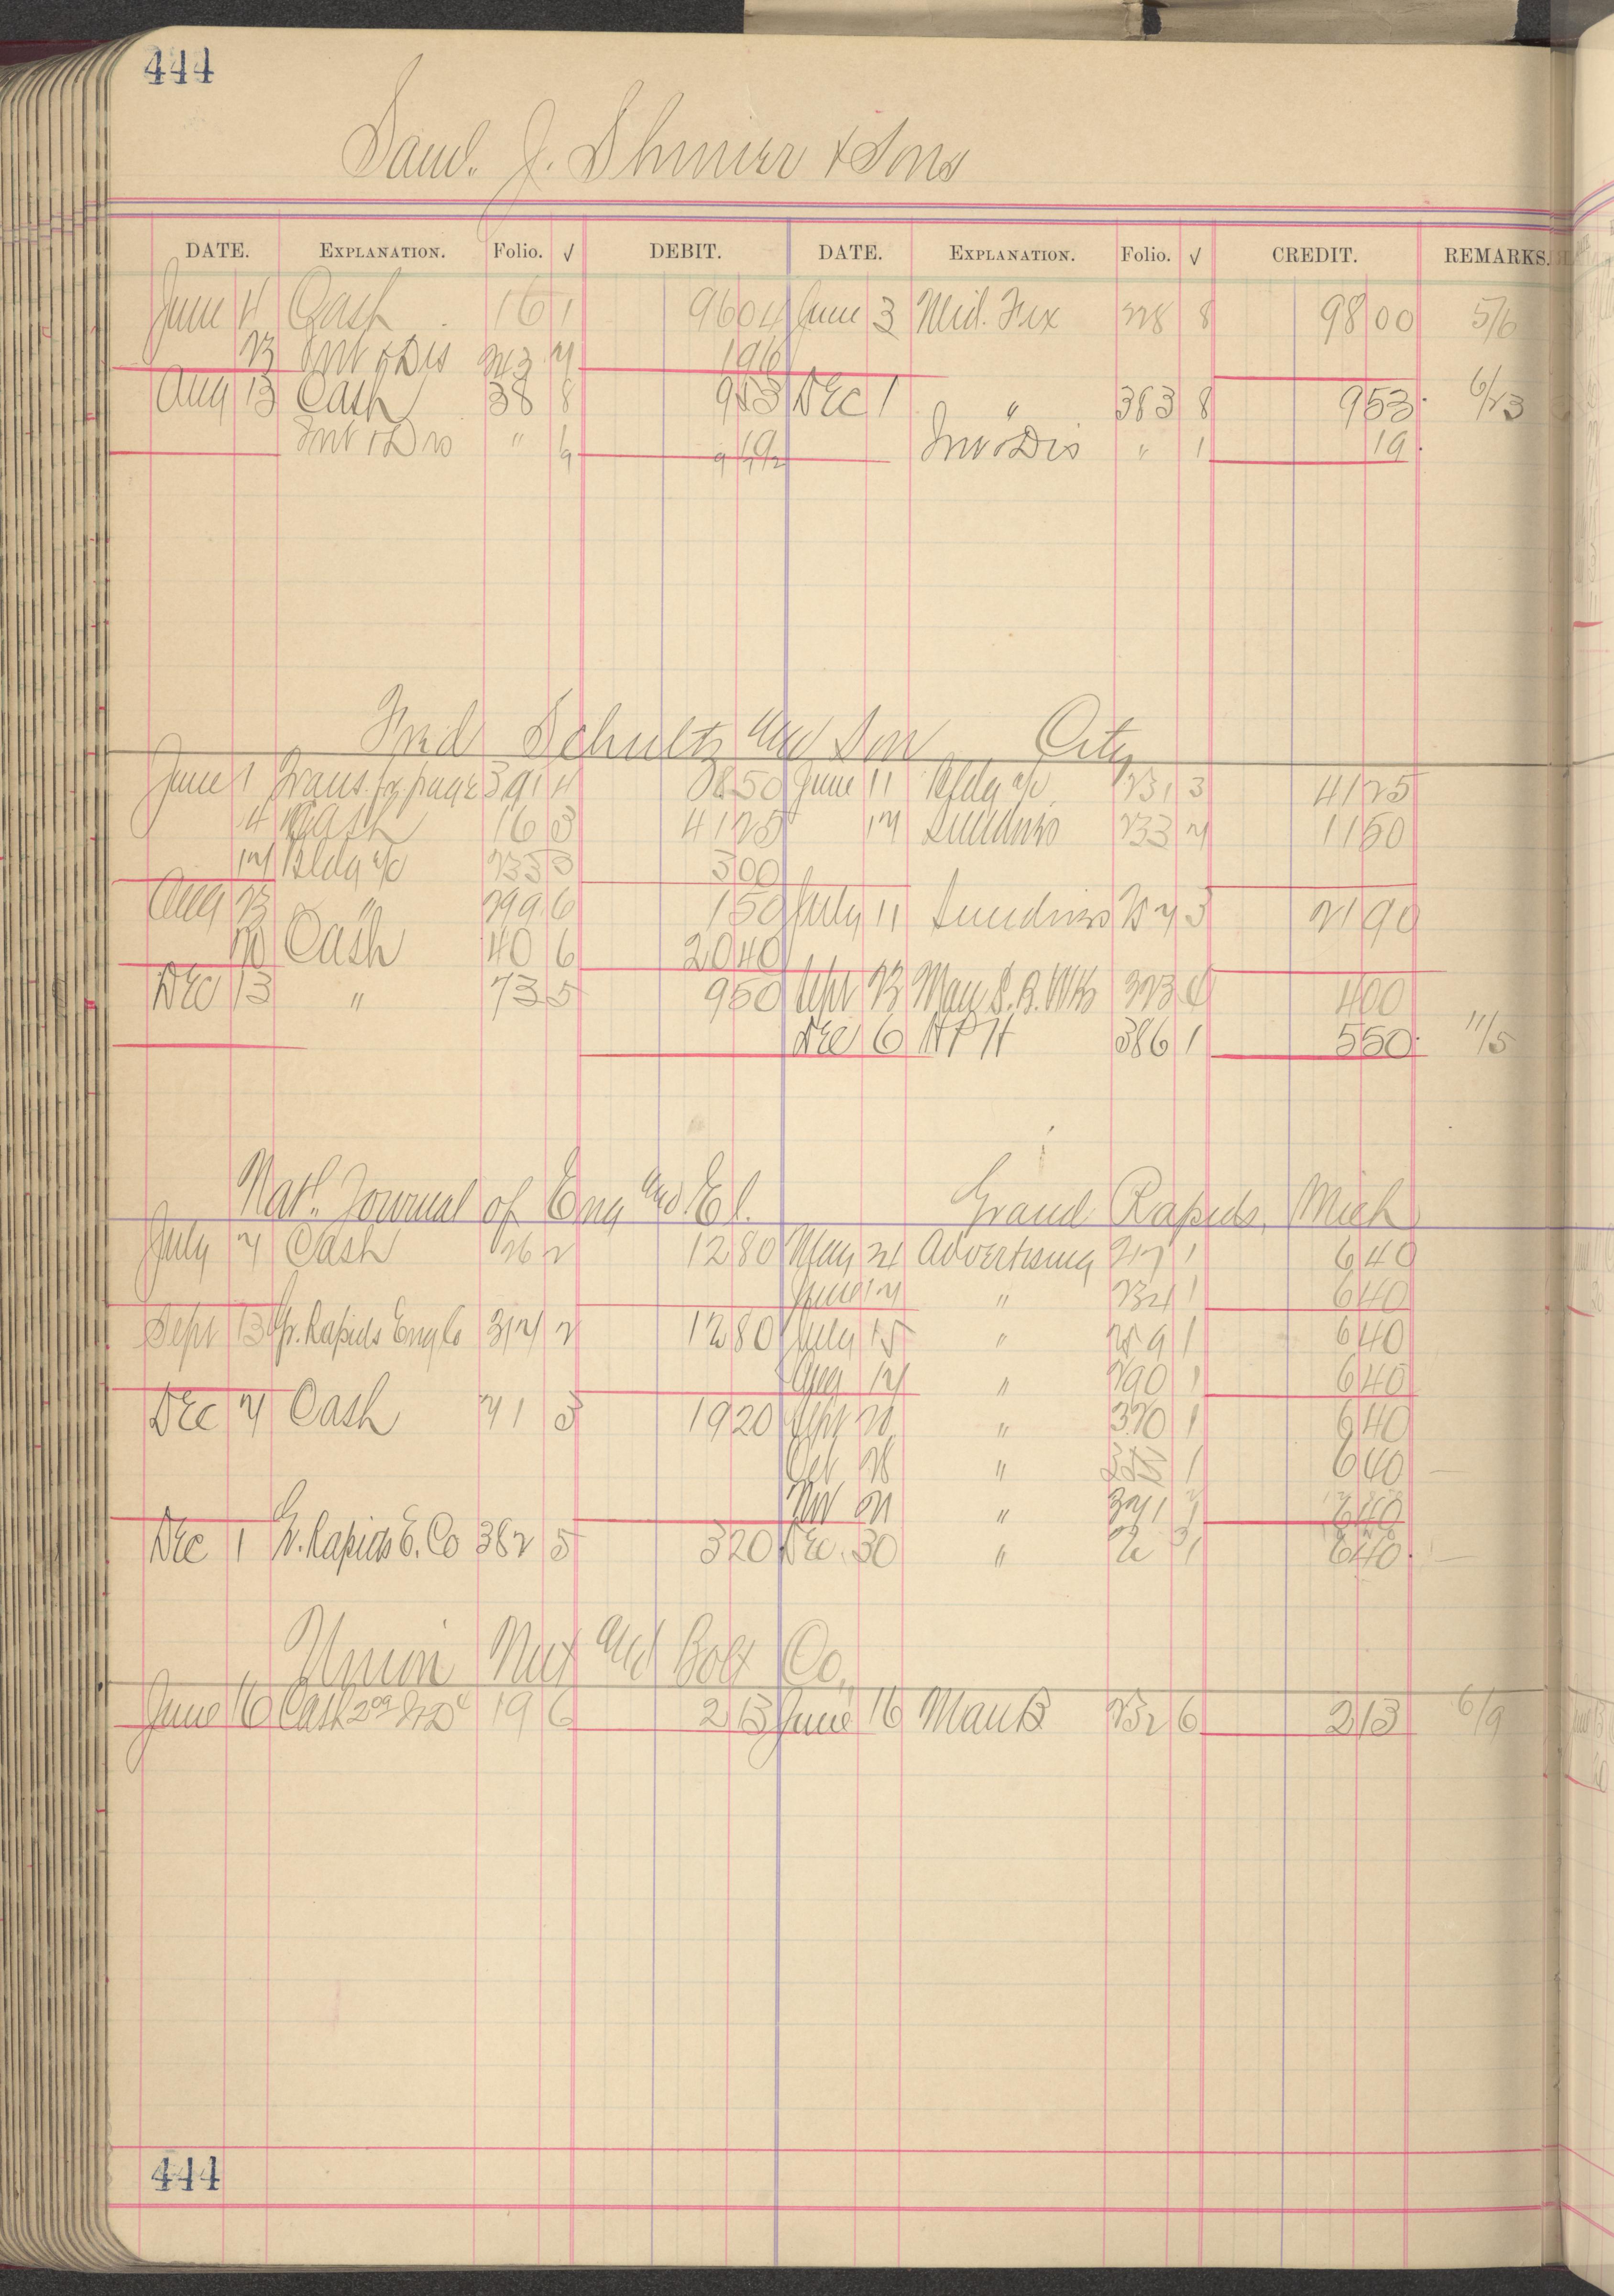 444
Saml. J. Shimer & Sons
DATE. EXPLANATION. Folio. √ DEBIT. DATE. EXPLANATION. Folio. √ CREDIT. REMARKS.
June 4 Cash 16 1 9604 June 3 Mid. Fix 228 8 9800 5/6
Int & Dis 7 196
Aug 13 Cash 38 8 953 Dec 1 " 383 8 953 6/23
Int & Dis " 19 Int & Dis " 1 19
Fred Schultz and Son City
June 1 Trans. fr page 391 4 850 June 11 Bldg a/c 231 3 4125
4 Cash 16 3 4125 17 Sundries 233 7 1150
17 Bldg a/c 233 3 300
Aug 2 " 299 6 150 July 11 Sundries 3 2190
20 Cash 40 6 2040
Dec 13 " 73 5 950 Sept 23 Man 323 400
Dec 6 H P H 386 1 550 11/5
Natl. Journal of Eng and El. Grand Rapids, Mich
July 7 Cash 26 2 1280 May 24 Advertising 217 1 640
June 17 " 234 1 640
Sept 13 Gr. Rapids Eng Co 317 2 1280 July 15 " 259 1 640
Aug 17 " 290 1 640
Dec 7 Cash 71 3 1920 Sept 20 " 320 1 640
Oct 26 " 1 640
Nov 21 " 371 640
Dec 1 Gr. Rapids E. Co 382 5 320 Dec. 30 " 640
Union Nut and Bolt Co.
June 16 Cash 19 6 213 June 16 Man B 232 6 213 6/9
444